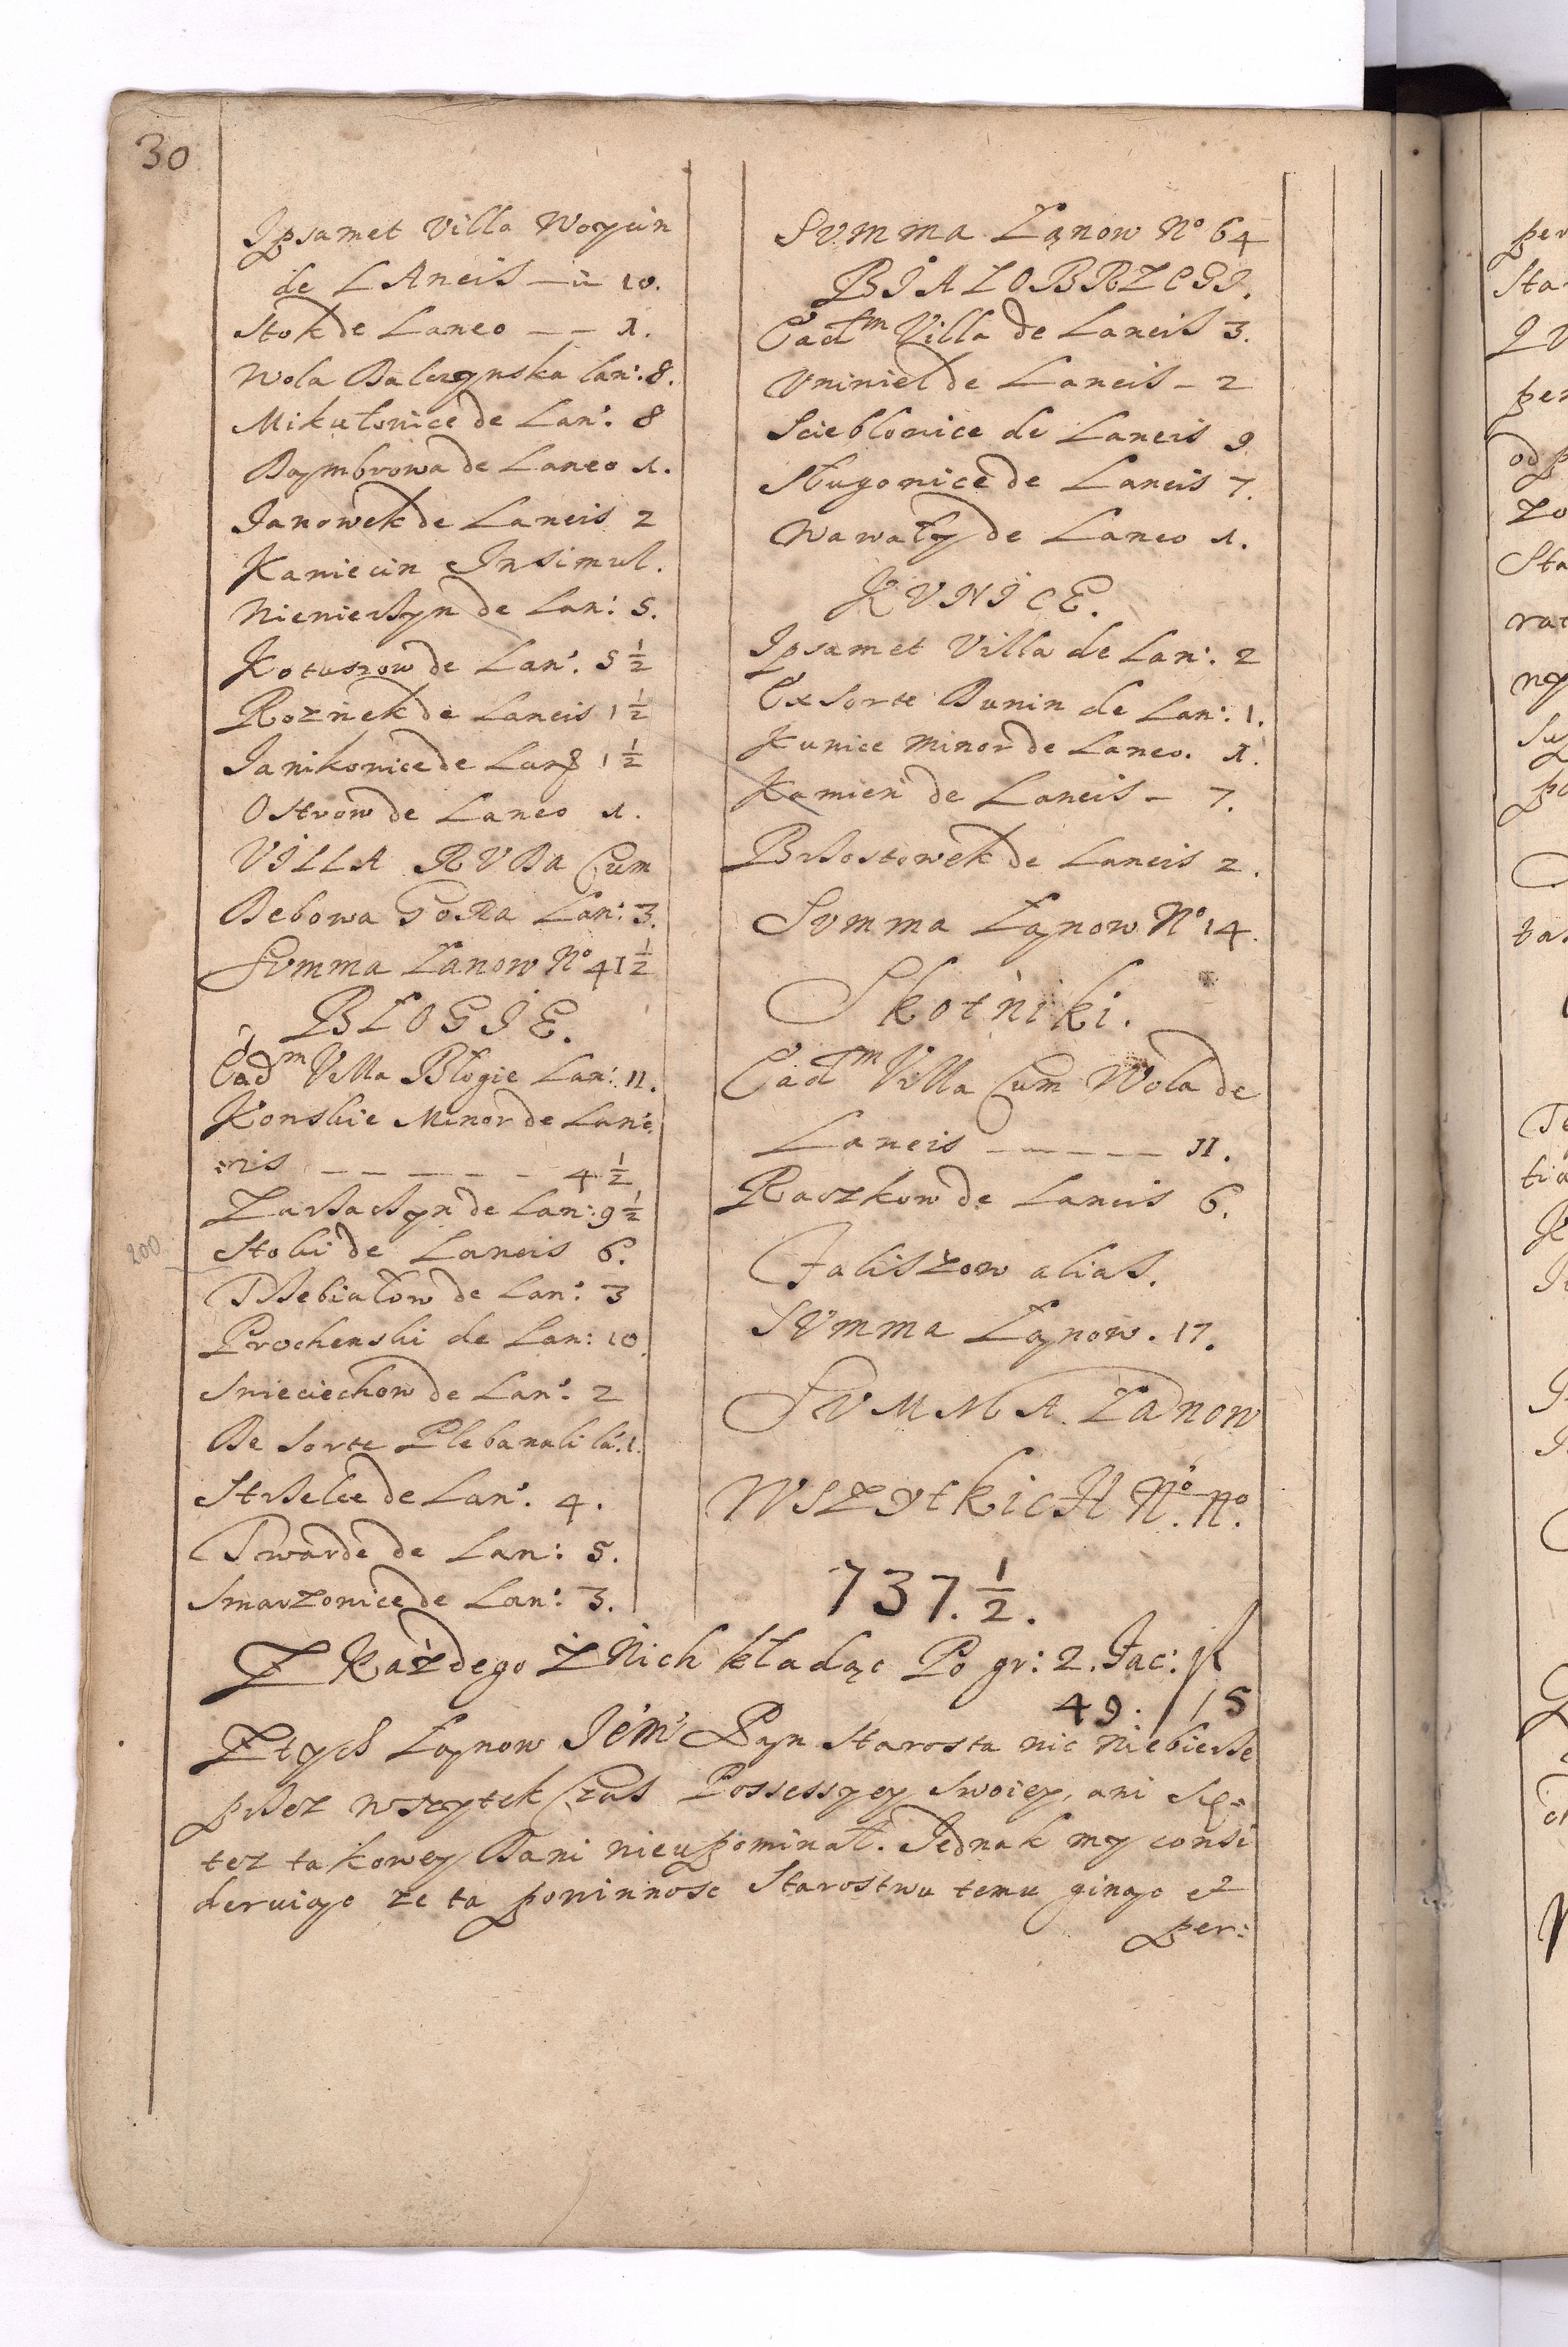 30
Ipsamet Villa Woycin
de LAneis — 10.
Stok de Laneo — — 1.
Wola Daleszynska lan: 8.
Mikułowice de Lan: 8
Dąmbrowa de Laneo 1.
Janowek de Laneis 2
Kaniecin Insimul.
de Lan: 5.
Kotuszow de Lan: 5 1/2
Roznek de Laneis 1 1/2
Janikowice de Lan 1 1/2
Ostrow de Laneo 1.
VILLA RUDA Cum
Debowa GoRa Lan: 3.
Summa Łanow No 41 1/2
BŁOGIE.
Ead m Villa Błogie Lan: 11.
Konskie Minor de Lanè
:ris — — — — — 4 1/2
de Lan: 9 1/2
200
Stoki de Laneis 6.
de Lan: 3
Prochenski de Lan: 10.
Snieciechow de Lan: 2
De Sorte Plebanali la: 1.
Strselce de Lan: 4.
Twarde de Lan: 5.
Smarzowice de Lan: 3.
Summa Łanow No 64
BIALOBRZEGI.
Ead m Villa de Laneis 3.
Uniniel de Laneis — 2
Scieblowice de Laneis 9
Sługowice de Laneis 7.
Wawały de Laneo 1.
KUNICE.
Ipsamet Villa de Lan: 2
Ex Sorte Dunin de Lan: 1.
Kunice Minor de Laneo. 1.
Kamien de Laneis — 7.
Brsostowek de Laneis 2.
Summa Łąnow No 14.
Skotniki.
Ead m Villa Cum Wola de
Laneis — — — — — 11.
Raczkow de Laneis 6.
Faliszow alias.
SUmma Łąnow. 17.
SUMMA Łanow
WSZytkicH No. No.
737. 1/2.
Z Każdego z Nich kładąc Po gr: 2. Fac: fl
49. / 15
Ztych Łąnow Jem Pąn Starosta nic Niebierse
prsez wszytek Czas Possessyey Swoiey, ani Się
tez takowey Dani nieupominał. Jednak my consi
deruiąc ze ta powinnosc Starostwu temu ginąc et
per: